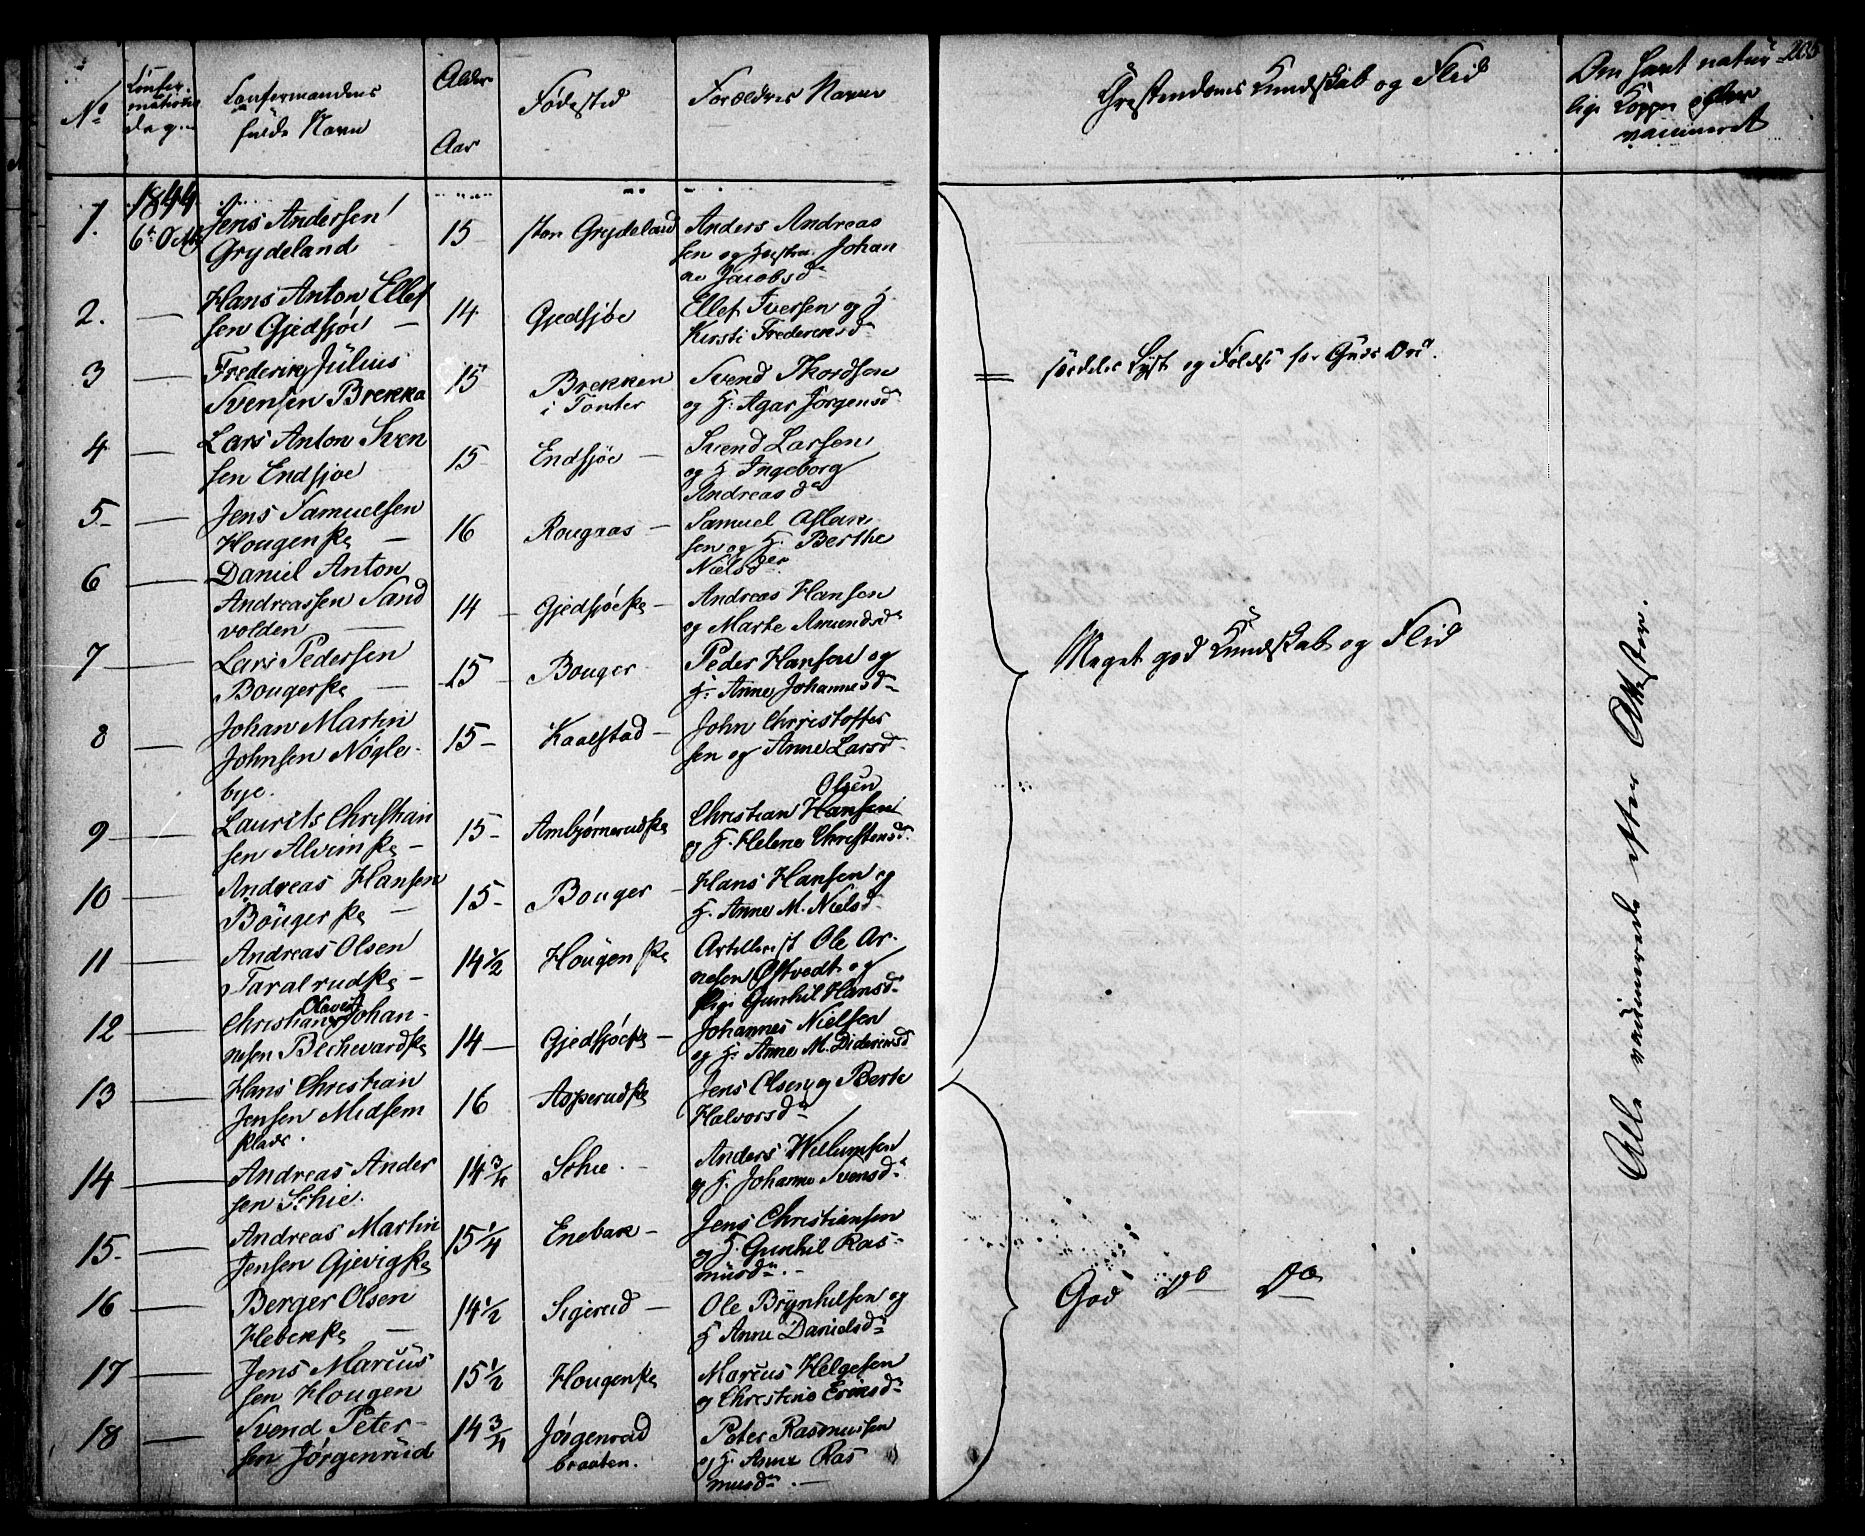 203
No
Confir-
mations
dag
Confirmandens
fulde Navn
Alder
Aar
Fødested
Forældres Navne
Christendoms Kundskab og Flid
Om havt natur-
lige Kopper eller
vaccineret
1844
1. 6te Octbr Jens Andersen
Grydeland 15 Grydeland Anders Andreas
sen og Hustru Johan
ne Jacobsd.
2. — Hans Anton Ellef
sen Gjedsjøe — 14 Gjedsjøe Ellef Iversen og H
Kirsti Frederiksd.
3 — Frederik Julius
Svensen Brekka 15 Brekken
i Tomter Svend Thordsen
og H. Agar Jörgensd.
= særdeles Lyst og Følelse for Guds Ord.
4 — Lars Anton Sven
sen Endsjøe 15 Endsjöe — Svend Larsen
og H Ingeborg
Andreasd.
5 — Jens Samuelsen
Hougenske — 16 Rougaas — Samuel Aslan
sen og H. Berthe
Nielsder
6 — Daniel Anton
Andreassen Sand
volden — 14 — Gjedsjöeske — Andreas Hansen
og Marte Amundsd.
7 — Lars Pedersen
Bougerske — 15 — Bouger Peder Hansen og
H. Anne Johannesd.
Meget god Kundskab og Flid
8 — Johan Martin
Johnsen Nögle-
bye. 15 — Kaalstad — John Christoffer
sen og Anne Larsd.
9 — Laurits Christian
sen Alvimske — 15 — Ambjørnerudske Christian Hansen Olsen
og H. Helene Christensd.
10 — Andreas Hansen
Bougerske — 15 — Bouger — Hans Hansen og
H. Anne M. Nielsd.
11 — Andreas Olsen
Taralrudske — 14 1/2 Hougenske Artillerist Ole Ar-
nesen Østvedt og
Pige Gunhil Hansd.
12 — Christian Olaves Johan-
nesen Bechevardske 14 — Gjedsjöeske — Johannes Nielsen
og H. Anne M. Dideriksd
13 — Hans Christian
Jensen Midsem
plads. 16 Asperudske Jens Olsen og Berte
Halvorsd.
14 — Andreas Ander
sen Schie. 14 3/4 Schie. — Anders Willumsen
og H. Johanne Svensd.
15 — Andreas Martin
Jensen Gjevigske 15 1/4 Enebak — Jens Christiansen
og H. Gunhil Ras-
musd. —
16 — Berger Olsen
Hebekske — 14 1/2 Sigerud — Ole Brynhilsen og
H Anne Danielsd.
God Do Do
17 — Jens Marcus
sen Hougen 15 1/2 Hougenske Marcus Helgesen
og Christine Eriksd.
18 — Svend Peter-
sen Jörgenrud 14 3/4 Jörgenrud
braaten. Peter Rasmussen
og H. Anne Ras
musd. —
Alle vaccinerede efter Attester.